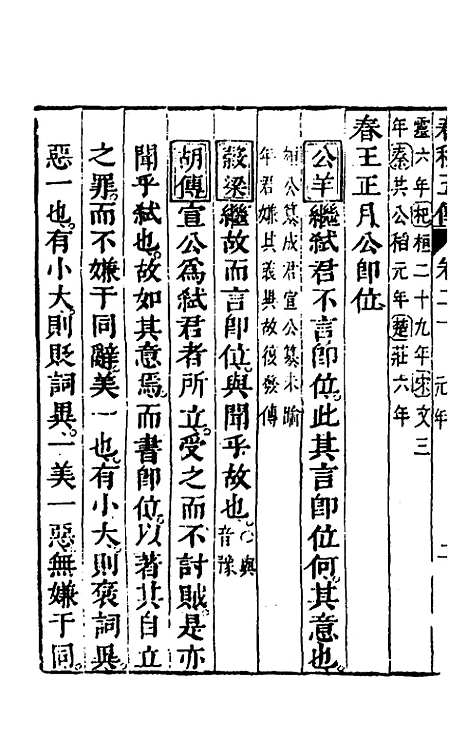 春秋五傳 卷二一 元年 二
靈六年杞桓二十九年宋文三
年秦共公稻元年楚莊六年
春王正月公卽位
公羊繼弑君不言卽位此其言卽位何其意也
桓公篡成君宣公篡未踰
年君嫌其義異故復發傳
穀梁繼故而言卽位與聞乎故也○與音豫
胡傳宣公爲弑君者所立受之而不討賊是亦
聞乎弑也故如其意焉而書卽位以著其自立
之罪而不嫌于同辭美一也有小大則褒詞異
惡一也有小大則貶詞異一美一惡無嫌于同